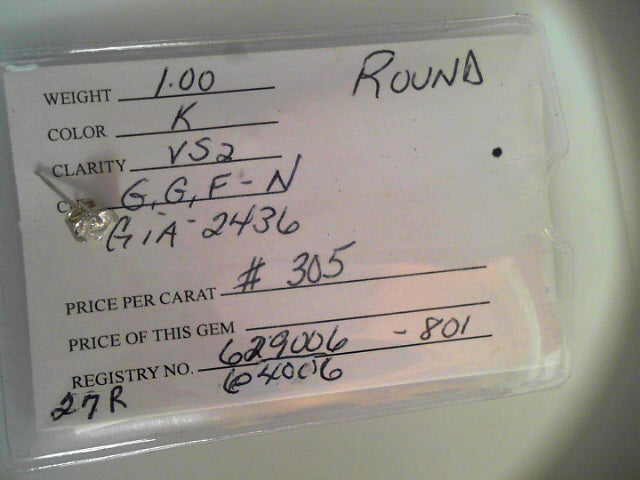 ROUND
WEIGHT 1.00
COLOR K
CLARITY VS2
G, G, F - N
GIA - 2436
PRICE PER CARAT # 305
PRICE OF THIS GEM
REGISTRY NO. 629006 - 801
64006
27R